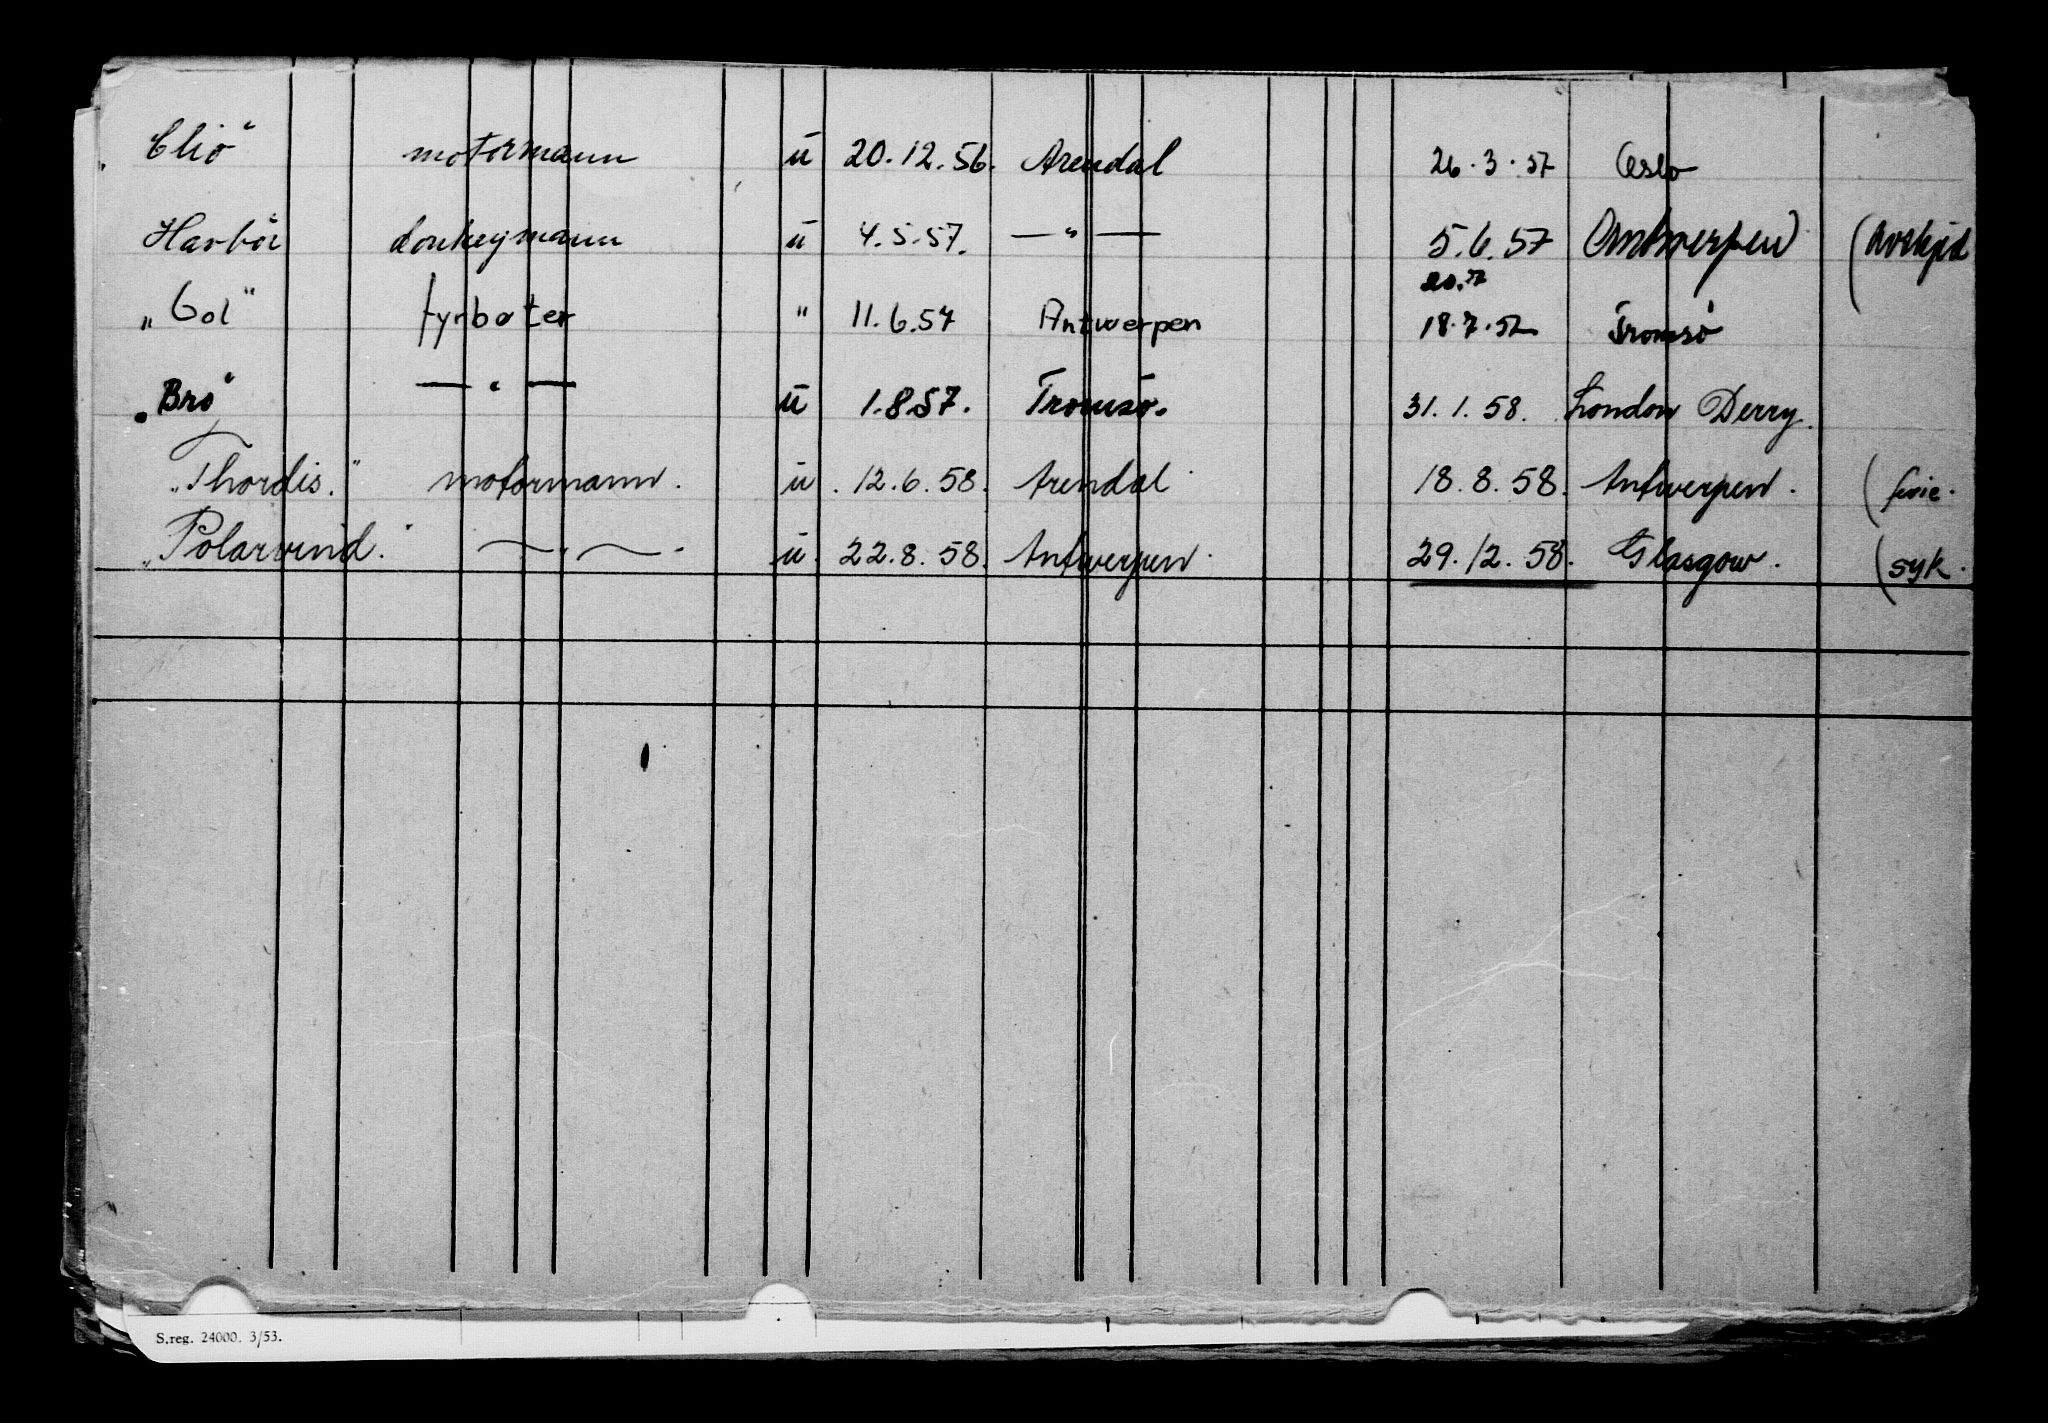 "Clio" motormann u 20.12.56. Arendal 26.3.57 Oslo
Havbör donkeymann u 4.5.57. —"— 5.6.57 Antwerpen (Avskjed
20.7
"Gol" fyrbøter " 11.6.57 Antwerpen 18.7.57 Tromsö
"Bro" —"— u 1.8.57. Tromsö. 31.1.58. London Derry.
"Thordis." motormann. u. 12.6.58. Arendal 18.8.58. Antwerpen. (ferie.
"Polarvind." —"—. u. 22.8.58. Antwerpen. 29.12.58. Glasgow. (syk.
S.reg. 24000. 3/53.